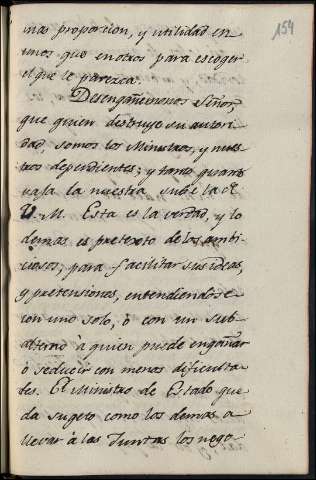 154
mas proporcion, y utilidad en
unos que en otros para escoger
el que le parezca.
Desengañemonos Señor,
que quien destruye su autori-
dad somos los Ministros, y nues-
tros dependientes; y tanto quanto
vaja la nuestra sube la de
V. M. Esta es la verdad, y lo
demas es pretexto de los ambi-
ciosos, para facilitar sus ideas,
y pretensiones, entendiendose
con uno solo, ó con un sub-
alterno à quien puede engañar
ó seducir con menos dificulta-
des. El Ministro de Estado que
da sugeto como los demas a
llevar à las Juntas los nego-